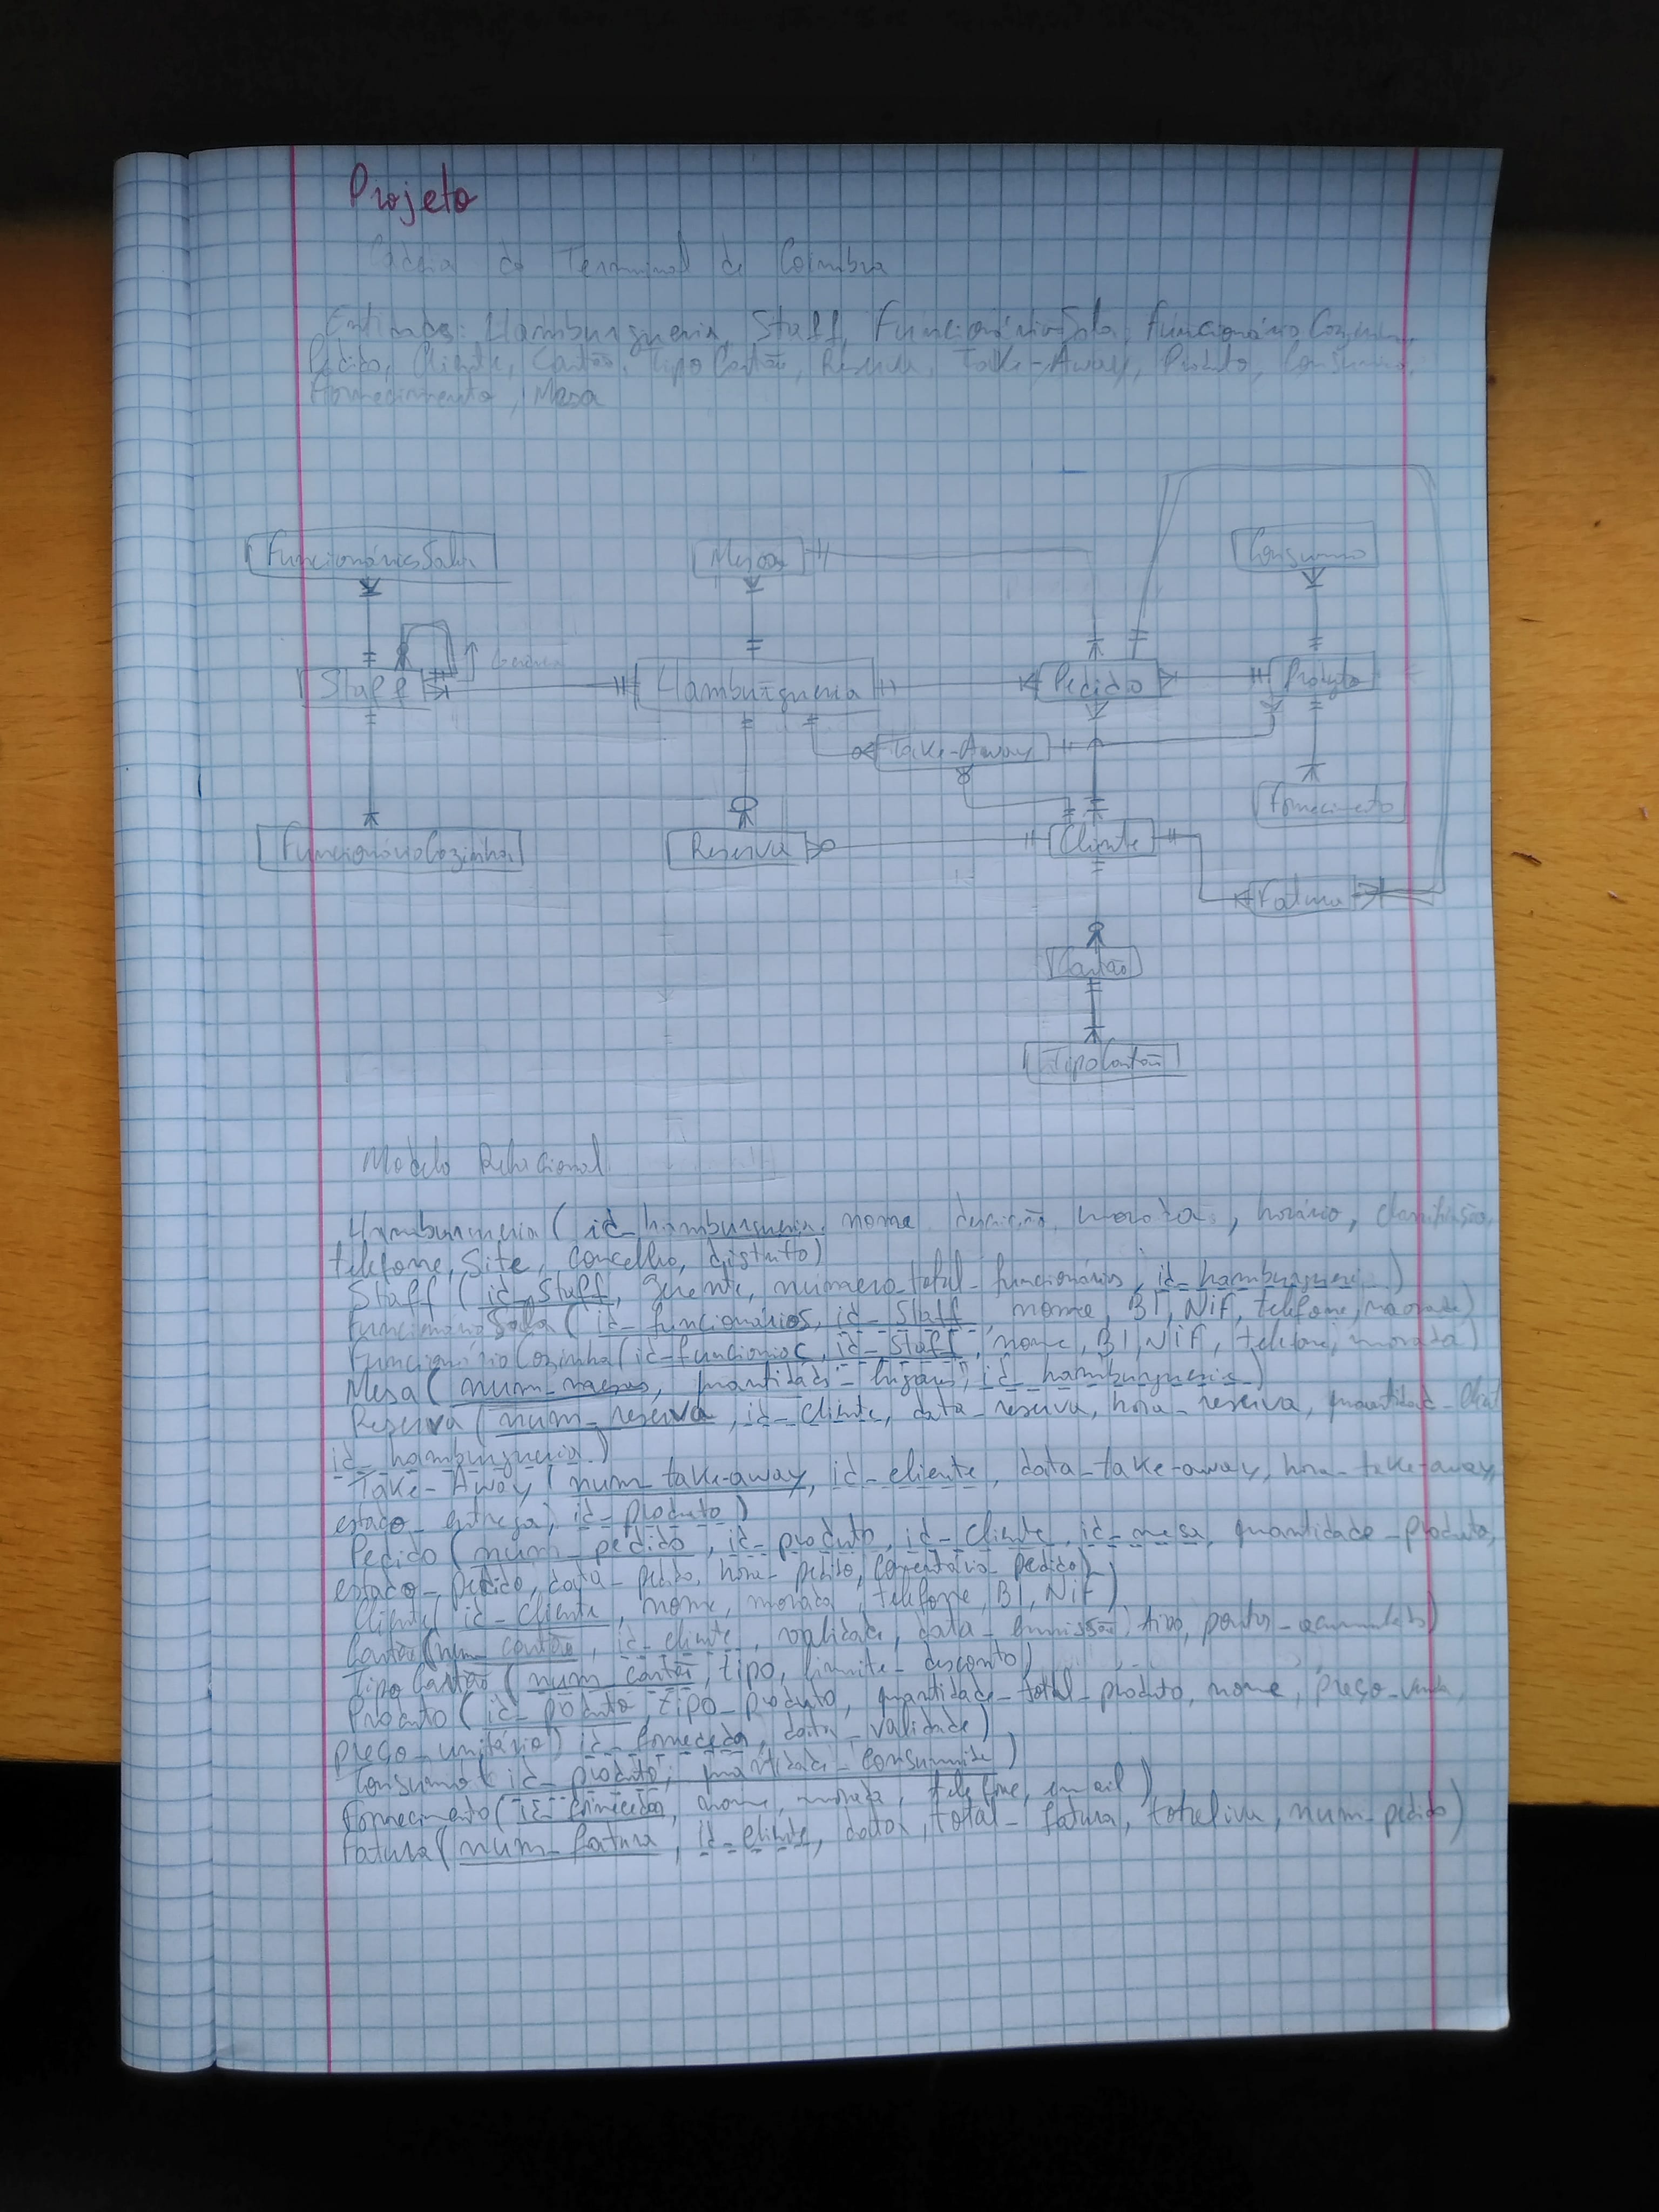 Projeto
Cadeia do Terminal de Coimbra
Entidades: Hamburgueria, Staff, FuncionárioSala, FuncionárioCozinha,
Pedido, Cliente, Cartão, TipoCartão, Reserva, Take-Away, Produto, Consumo,
Fornecimento, Mesa
FuncionárioSala
Mesa
Consumo
Staff
Hamburgueria
Pedido
Produto
Take-Away
Fornecimento
FuncionárioCozinha
Reserva
Cliente
Fatura
Cartão
TipoCartão
Modelo Relacional
Hamburgueria (id_hamburgueria, nome, morada, horário, classificação,
telefone, Site, concelho, distrito)
Staff (id_Staff, gerente, número_total_funcionários, id_hamburgueria)
FuncionárioSala (id_funcionários, id_Staff, nome, BI, NIF, telefone, morada)
FuncionárioCozinha (id_funcionarioc, id_Staff, nome, BI, NIF, telefone, morada)
Mesa (num_mesas, quantidade_lugares, id_hamburgueria)
Reserva (num_reserva, id_cliente, data_reserva, hora_reserva,
id_hamburgueria)
Take-Away (num_take-away, id_cliente, data_take-away, hora_take-away,
estado_entrega, id_produto)
Pedido (num_pedido, id_produto, id_cliente, id_mesa, quantidade_produto,
estado_pedido, data_pedido, hora_pedido, comentário_pedido)
Cliente (id_cliente, nome, morada, telefone, BI, NIF)
Cartão (num_cartão, id_cliente, validade, data_emissão, tipo, pontos_acumulados)
TipoCartão (num_cartão, tipo, limite_desconto)
Produto (id_produto, tipo_produto, quantidade_total_produto, nome, preço_venda,
preço_unitário, id_fornecedor, data_validade)
Consumo (id_produto, quantidade_consumida)
Fornecimento (id_fornecedor, nome, morada, telefone, email)
Fatura (num_fatura, id_cliente, data, total_fatura, totaliva, num_pedido)